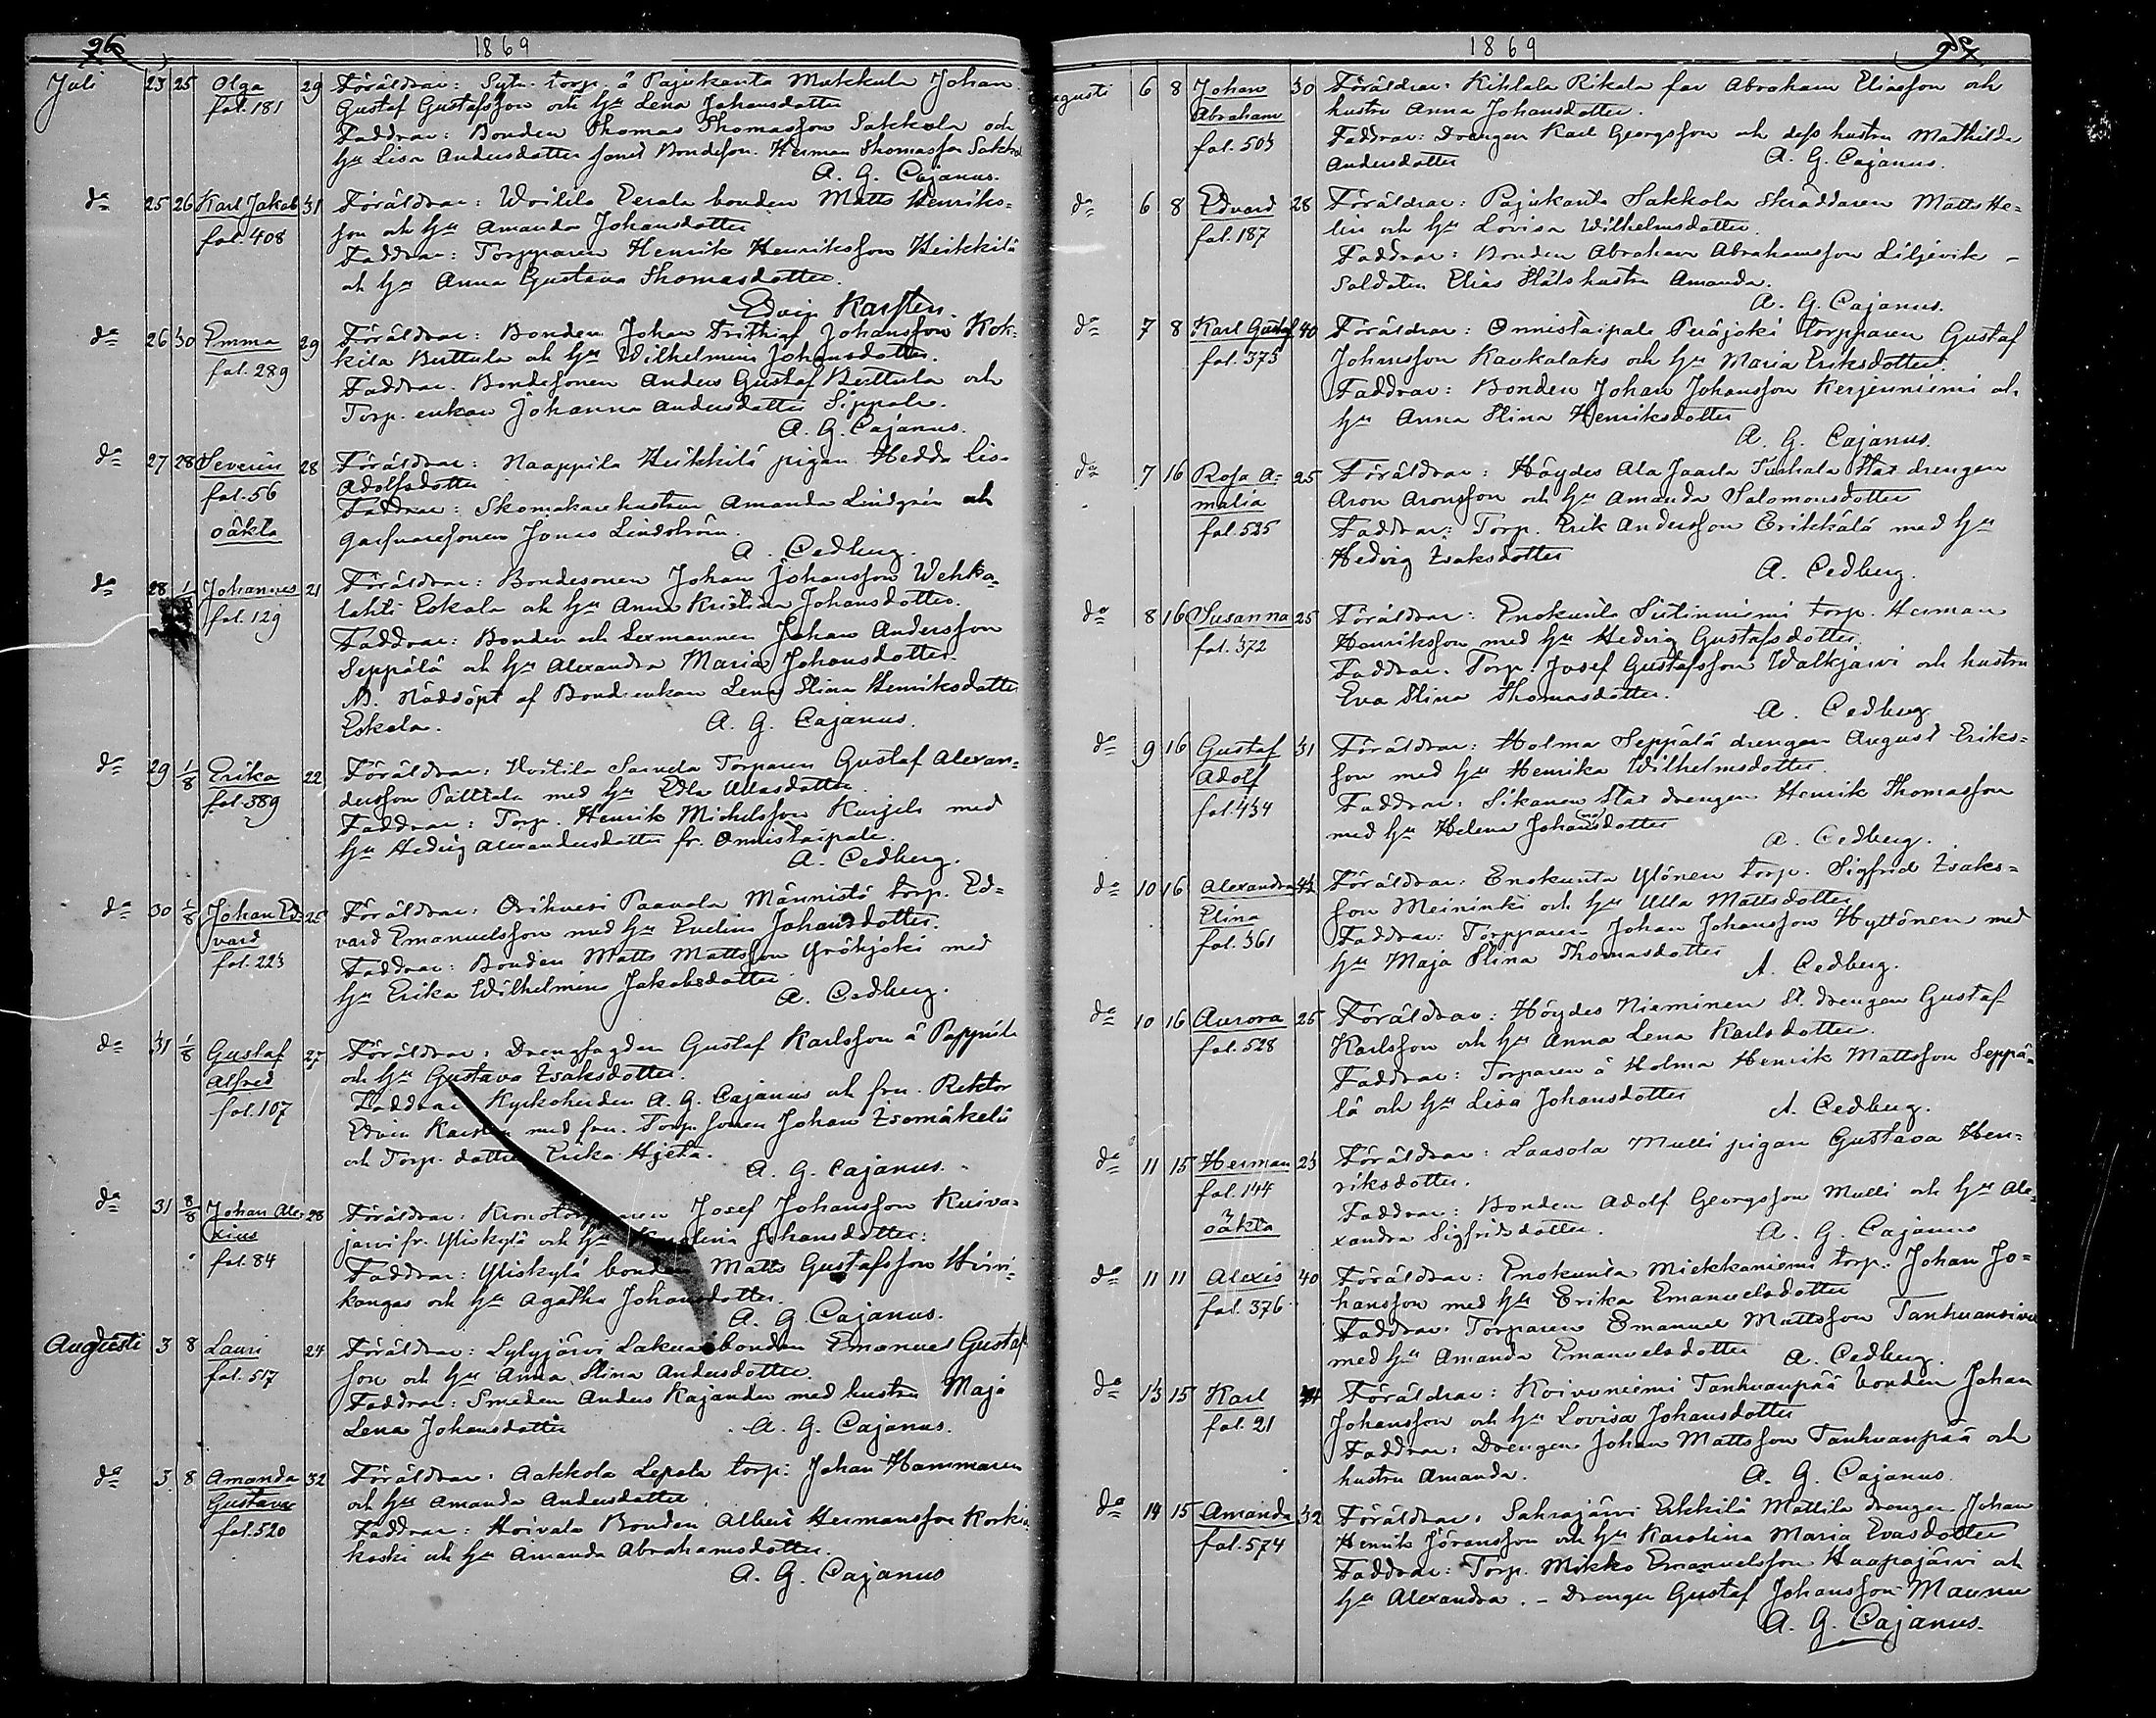 96
1869
Juli 23 25 Olga 29 Föräldrar: Sytn. torp. å Pajukanta Mukkula Johan
fol. 181 Gustaf Gustafsson och hu Lena Johansdotter
Faddrar: Bonden Thomas Thomasson Sakkola och
hu Lisa Andersdotter samt Bondeson. Herman Thomasson
A. G. Cajanus.
do 25 26 Karl Jakob 31 Föräldrar: Woitila Perala bonden Matts Henriks=
fol. 408 son och hu Amanda Johansdotter
Faddrar: Torpparen Henrik Henriksson Heikkilä
och hu Anna Gustava Thomasdotter.
Edvin Karsten.
do 26 30 Emma 29 Föräldrar: Bonden Johan Frithiof Johansson Kok=
fol. 289 kila Buttula och hu Wilhelmina Johansdotter.
Faddrar. Bondesonen Anders Gustaf Buttula och
Torp. enkan Johanna Andersdotter Sippala.
A. G. Cajanus.
do 27 28 Severin 28 Föräldrar: Naappila Heikkilä pigan Hedda Lisa
fol. 56 Adolfsdotter
oäkta Faddrar: Skomakarehustrun Amanda Lindgrén och
garfvaresonen Jonas Lindström.
A. Cedberg.
do 28 Johannes 21 Föräldrar: Bondesonen Johan Johansson Wehka=
fol. 129 lahti Eskola och hu Anna Kristina Johansdotter.
Faddrar: Bonden och Lexmannen Johan Andersson
Seppälä och hu Alexandra Maria Johansdotter.
N. Nöddöpt af Bond-enkan Lena Stina Henriksdotter
Eskola. A. G. Cajanus.
do 29 1/8 Erika 22 Föräldrar: Woitila Torparen Gustaf Alexan=
fol. 389 dersson Pälttala med hu Edla Ullasdotter.
Faddrar: Torp. Henrik Michelsson Kurjela med
hu Hedvig Alexandersdotter fr. Onnistaipale.
A. Cedberg.
do 30 1/8 Johan Ed= 25 Föräldrar: Orihvesi Paavola Männistö torp. Ed=
vard vard Emanuelsson med hu Evelina Johansdotter.
fol. 223 Faddrar: Bonden Matts Mattsson Yrökjoki med
hu Erika Wilhelmina Jakobsdotter
A. Cedberg.
do 31 1/8 Gustaf 27 Föräldrar: Drengfogden Gustaf Karlsson å Pappila
Alfred och hu Gustava Isaksdotter.
fol. 107 Faddrar Kyrkoherden A. G. Cajanus och fru. Rektor
Edvin Karsten med fru. Torp. sonen Johan Isomäkelä
och Torp. dotter Erika Hjeta.
A. G. Cajanus.
do 31 8/8 Johan Ale= 28 Föräldrar: Josef Johansson Kuiva=
xius jarvi fr. Yliskylä och hu Karolina Johansdotter:
fol. 84 Faddrar: Yliskylä bonden Matts Gustafsson Hirvi=
kangas och hu Agatha Johansdotter.
A. G. Cajanus.
Augusti 3 8 Lauri 24 Föräldrar: Lylyjärvi Lakuas bonden Emanuel Gustaf
fol. 517 son och hu Anna Stina Andersdotter.
Faddrar: Smeden Anders Kajander med hustru Maja
Lena Johansdotter A. G. Cajanus.
do 3 8 Amanda 32 Föräldrar: Aakkola Lepola torp: Johan Hammaren
Gustava och hu Amanda Andersdotter.
fol. 520 Faddrar: Hoivala Bonden Albert Hermansson Korkia
koski och hu Amanda Abrahamsdotter.
A. G. Cajanus
97
1869
gusti 6 8 Johan 30 Föräldrar: Kihlala Rikala far Abraham Eliasson och
Abraham hustru Anna Johansdotter.
fol. 503 Faddrar: Drengen Karl Georgsson och dess hustru Mathilda
Andersdotter A. G. Cajanus.
do 6 8 Edvard 28 Föräldrar: Pajukanta Sakkola Skräddaren Matts He=
fol. 187 lin och hu Lovisa Wilhelmsdotter.
Faddrar: Bonden Abraham Abrahamsson Liljevik –
Soldaten Elias Ståls hustru Amanda.
A. G. Cajanus.
do 7 8 Karl Gustaf 40 Föräldrar: Onnistaipale Peräjoki torpparen Gustaf
fol. 373 Johansson Kaukalaks och hu Maria Eriksdotter.
Faddrar: Bonden Johan Johansson Kerjenniemi och
hu Anna Stina Henriksdotter
A. G. Cajanus.
do 7 16 Rosa A= 25 Föräldrar: Höydes Ala Jaarla Turhala Stat drengen
malia Aron Aronsson och hu Amanda Salomonsdotter
fol. 525 Faddrar: Torp. Erik Andersson Erikkälä med hu
Hedvig Isaksdotter
A. Cedberg.
do 8 16 Susanna 25 Föräldrar: Enokunta Sutinniemi torp. Herman
fol. 372 Henriksson med hu Hedvig Gustafsdotter.
Faddrar. Torp. Josef Gustafsson Walkjärvi och hustru
Eva Stina Thomasdotter.
A. Cedberg
do 9 16 Gustaf 31 Föräldrar: Holma Seppälä drengen August Eriks=
Adolf son med hu Henrika Wilhelmsdotter.
fol. 434 Faddrar: Sikanen Stat drengen Henrik Thomasson
med hu Helena Johansdotter
A. Cedberg.
do 10 16 Alexandra 42 Föräldrar: Enokunta Ylönen torp. Sigfrid Isaks=
Elina son Meininki och hu Ulla Mattsdotter
fol. 361 Faddrar: Torpparen Johan Johansson Hyttönen med
hu Maja Stina Thomasdotter
A. Cedberg.
do 10 16 Aurora 25 Föräldrar: Höydes Nieminen St. drengen Gustaf
fol. 528 Karlsson och hu Anna Lena Karlsdotter.
Faddrar: Torparen å Holma Henrik Mattsson Seppä=
lä och hu Lisa Johansdotter
A. Cedberg.
do 11 15 Herman 23 Föräldrar: Laasola Mulli pigan Gustava Hen=
fol. 144 riksdotter.
oäkta Faddrar: Bonden Adolf Georgsson Mulli och hu Ale=
xandra Sigfridsdotter. A. G. Cajanus
do 11 11 Alexis 40 Föräldrar: Enokunta Miekkaniemi torp. Johan Jo=
fol. 376 hansson med hu Erika Emanuelsdotter
Faddrar: Torparen Emanuel Mattsson
med hu Amanda Emanuelsdotter A. Cedberg.
do 13 15 Karl Föräldrar: Koivuniemi Tanhuanpää bonden Johan
fol. 21 Johansson och hu Lovisa Johansdotter
Faddrar: Drengen Johan Mattsson Tanhuanpää och
hustru Amanda. A. G. Cajanus.
do 14 15 Amanda 32 Föräldrar: Sahrajärvi Erkkilä Mattila drengen Johan
fol. 574 Henrik Göransson och hu Karolina Maria Evasdotter
Faddrar: Torp. Mikko Emanuelsson Haapajärvi och
hu Alexandra. – Drengen Gustaf Johansson Maunu
A. G. Cajanus.